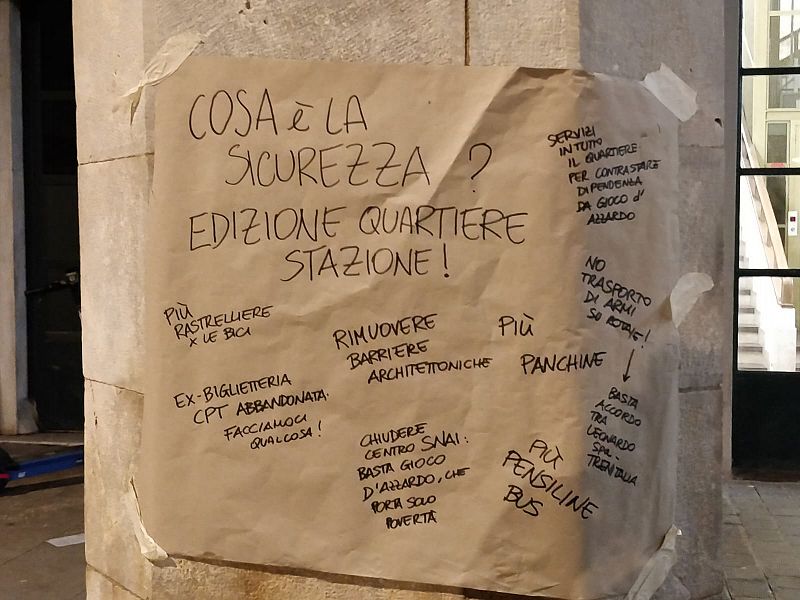 COSA è LA
SICUREZZA ?
EDIZIONE QUARTIERE
STAZIONE!
SERVIZI
IN TUTTO
IL QUARTIERE
PER CONTRASTARE
DIPENDENZA
DA GIOCO d'
AZZARDO
NO
TRASPORTO
DI ARMI
SU ROTAIE!
BASTA
ACCORDO
TRA
LEONARDO
SPA-
TRENITALIA
PIÙ
RASTRELLIERE
X LE BICI
RIMUOVERE
BARRIERE
ARCHITETTONICHE
PIÙ
PANCHINE
EX-BIGLIETTERIA
CPT ABBANDONATA.
FACCIAMOCI
QUALCOSA!
CHIUDERE
CENTRO SNAI:
BASTA GIOCO
D'AZZARDO, CHE
PORTA SOLO
POVERTÀ
PIÙ
PENSILINE
BUS